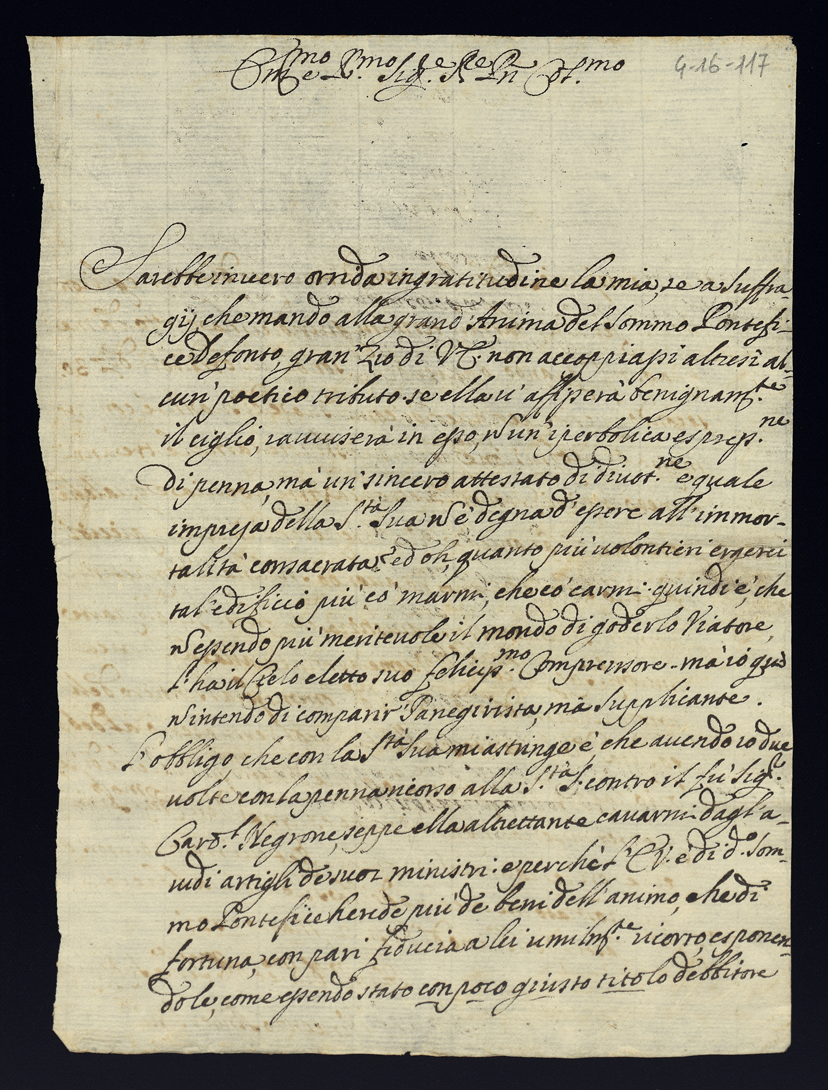 Em.mo e R.mo Sig.e Sig.e P͞n Col.mo
4-16-117
Sarebbe invero orrida ingratitudine la mia, se a suffra-
gij che mando alla grand'Anima del Sommo Pontefi-
ce defonto, gran Zio di V.E. non accoppiassi altresì al-
cun poetico tributo. se ella v'affisserà benignam.te
il ciglio, ravviserà in esso, nō un'iperbolica espress.ne
di penna, mà un sincero attestato di divot.ne e quale
impresa della S.tà Sua nō è degna d'essere all'immor-
talità consacrata? ed oh, quanto più volontieri ergerei
tal'edificio più co' marmi, che co' carmi. quindi è, che
nō essendo più meritevole il mondo di goderlo Viatore,
l'ha il Cielo eletto suo feliciss.mo Comprensore. mà io quì
nō intendo di comparir Panegirista, mà supplicante.
L'obbligo che con la S.tà Sua mi astringe è che avendo io due
volte con la penna ricorso alla S.tà S. contro il fù Sig.r
Card.l Negrone, seppe ella altrettante cavarmi dagl'a-
vidi artigli de suoi ministri: e perchè l'E.V. è di d.o Som-
mo Pontefice herede più de beni dell'animo, che di
fortuna, con pari fiducia a lei umilm.te ricorro, esponen-
dole, come essendo stato con poco giusto titolo debbitore